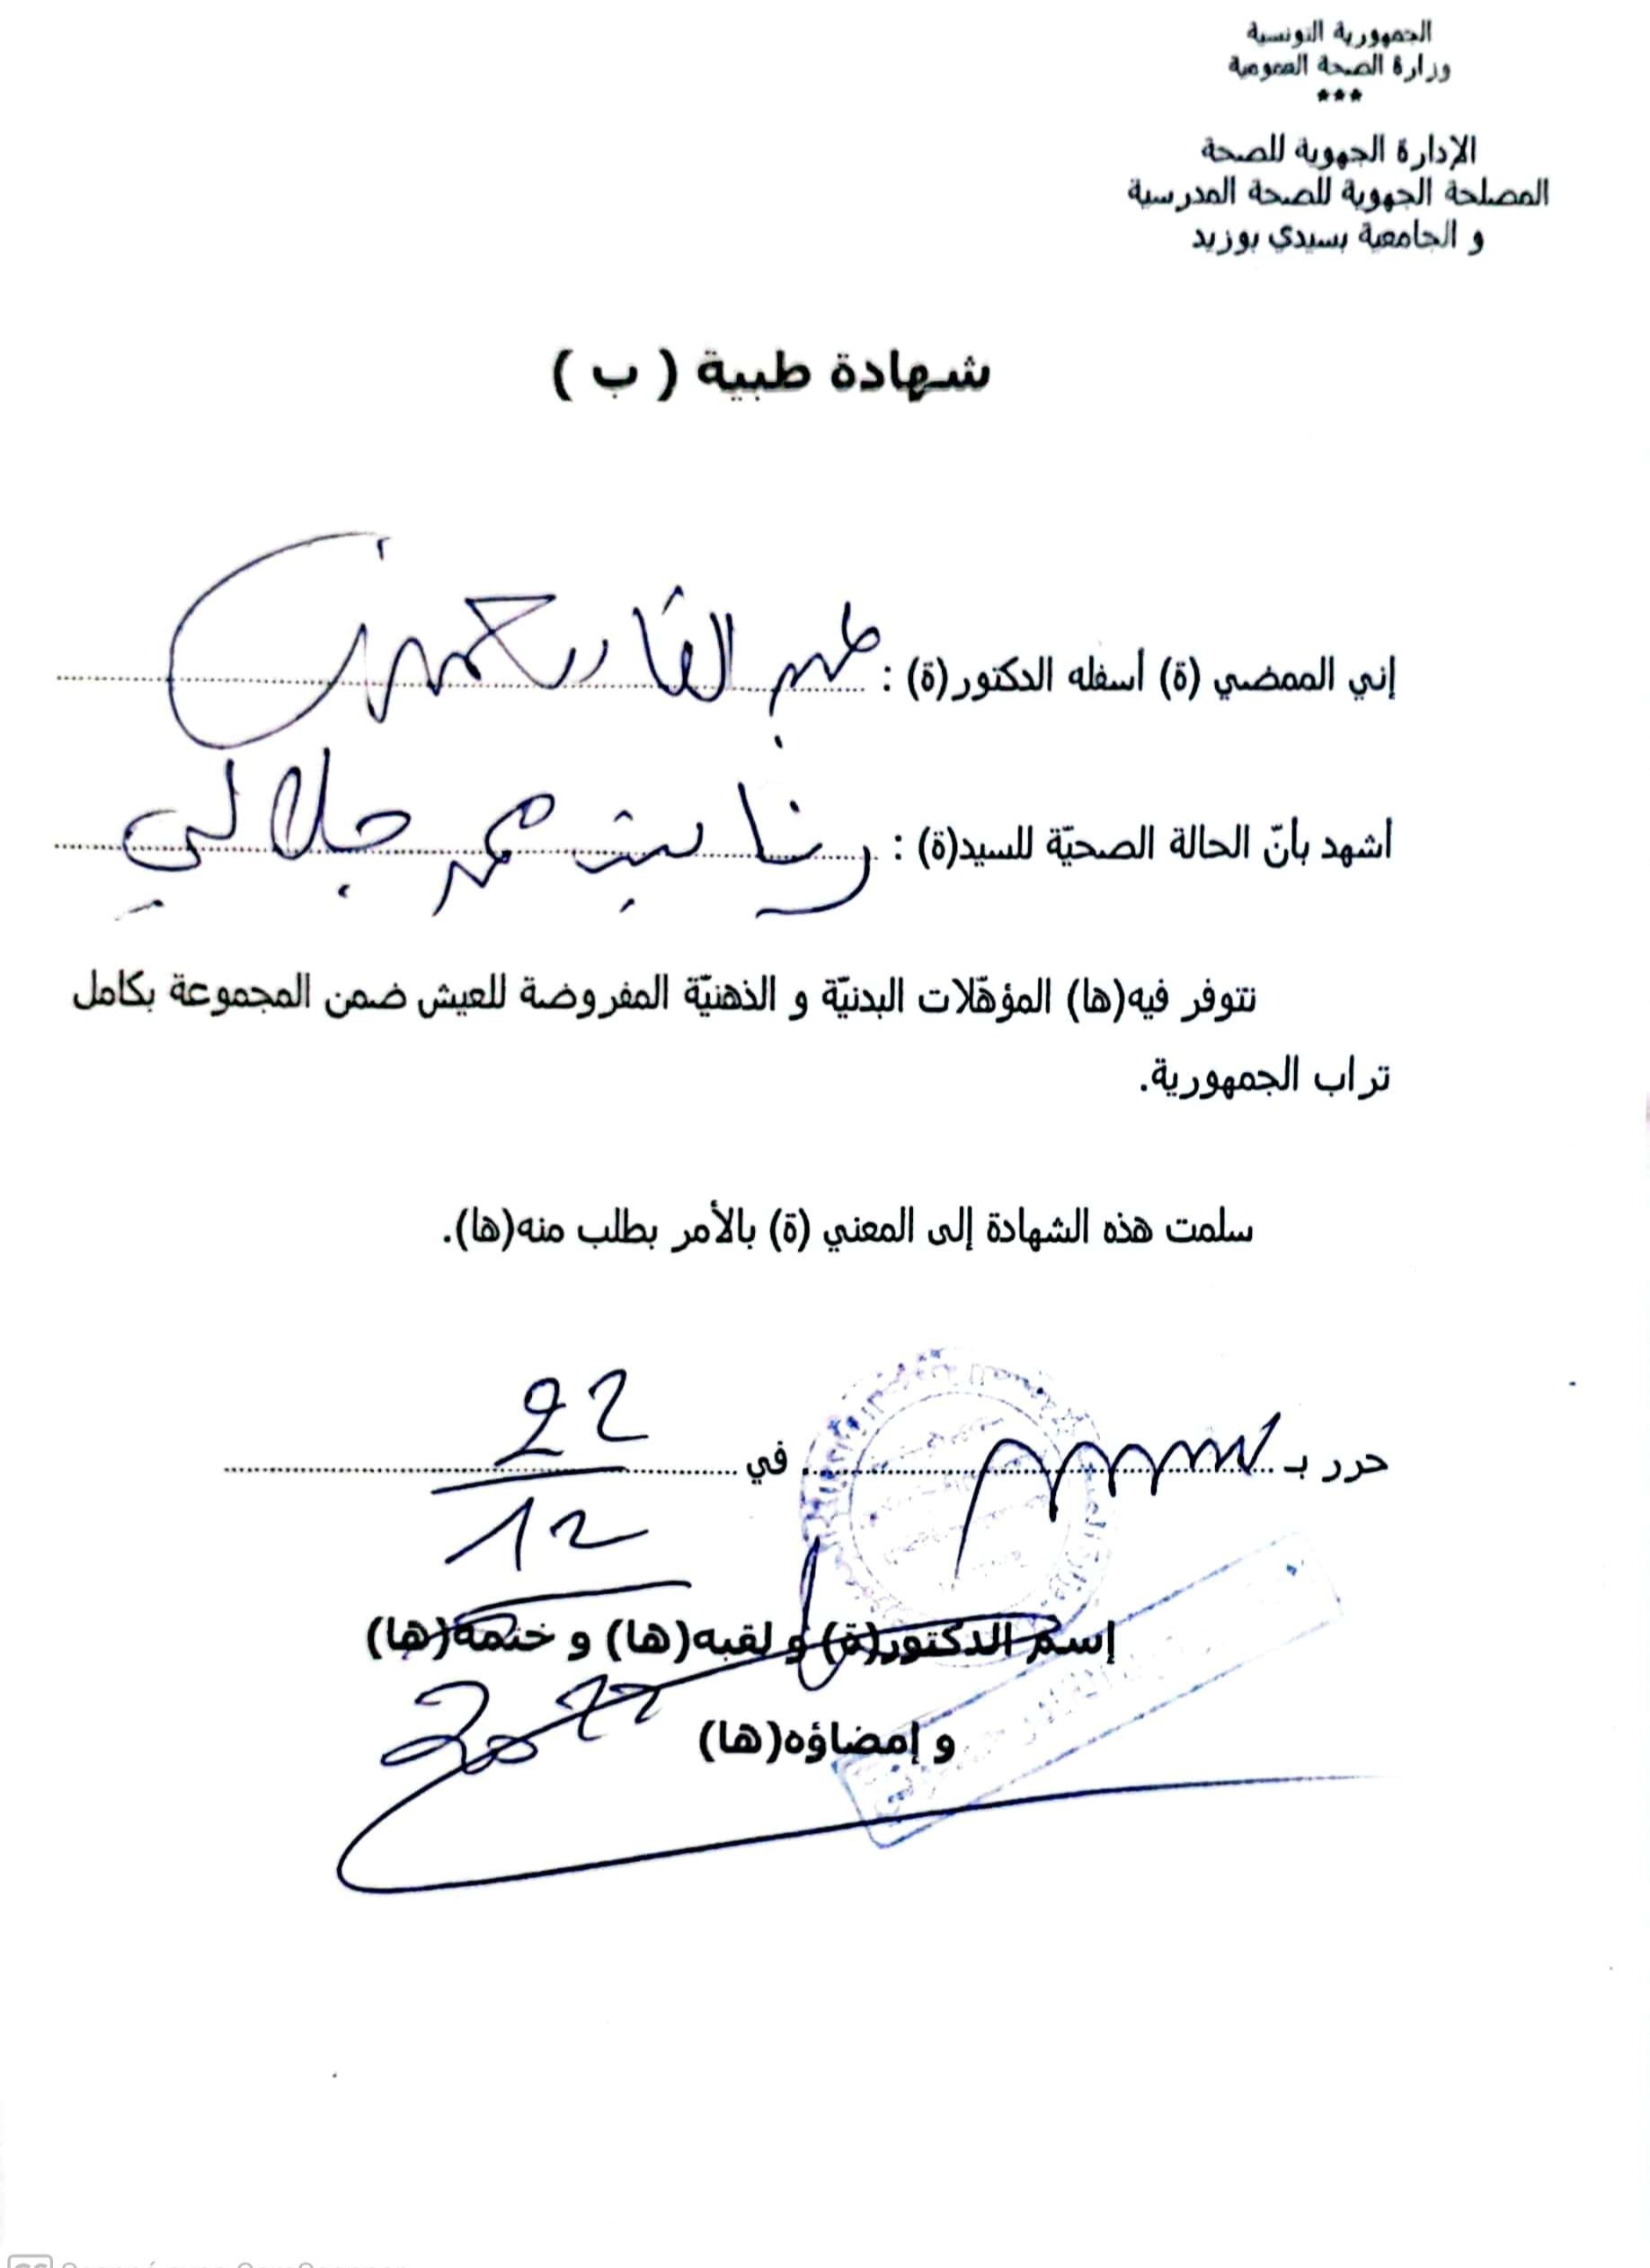 الجمهورية التونسية
وزارة الصحة العمومية
***
الإدارة الجهوية للصحة
المصلحة الجهوية للصحة المدرسية
و الجامعية بسيدي بوزيد
شهادة طبية ( ب )
إني الممضي (ة) أسفله الدكتور(ة) :
أشهد بأنّ الحالة الصحيّة للسيد(ة) : رنا بنت محمد جلالي
تتوفر فيه(ها) المؤهّلات البدنيّة و الذهنيّة المفروضة للعيش ضمن المجموعة بكامل
تراب الجمهورية.
سلمت هذه الشهادة إلى المعني (ة) بالأمر بطلب منه(ها).
حرر بـ في 22
12
إسم الدكتور(ة) و لقبه(ها) و ختمه(ها)
2022
و إمضاؤه(ها)